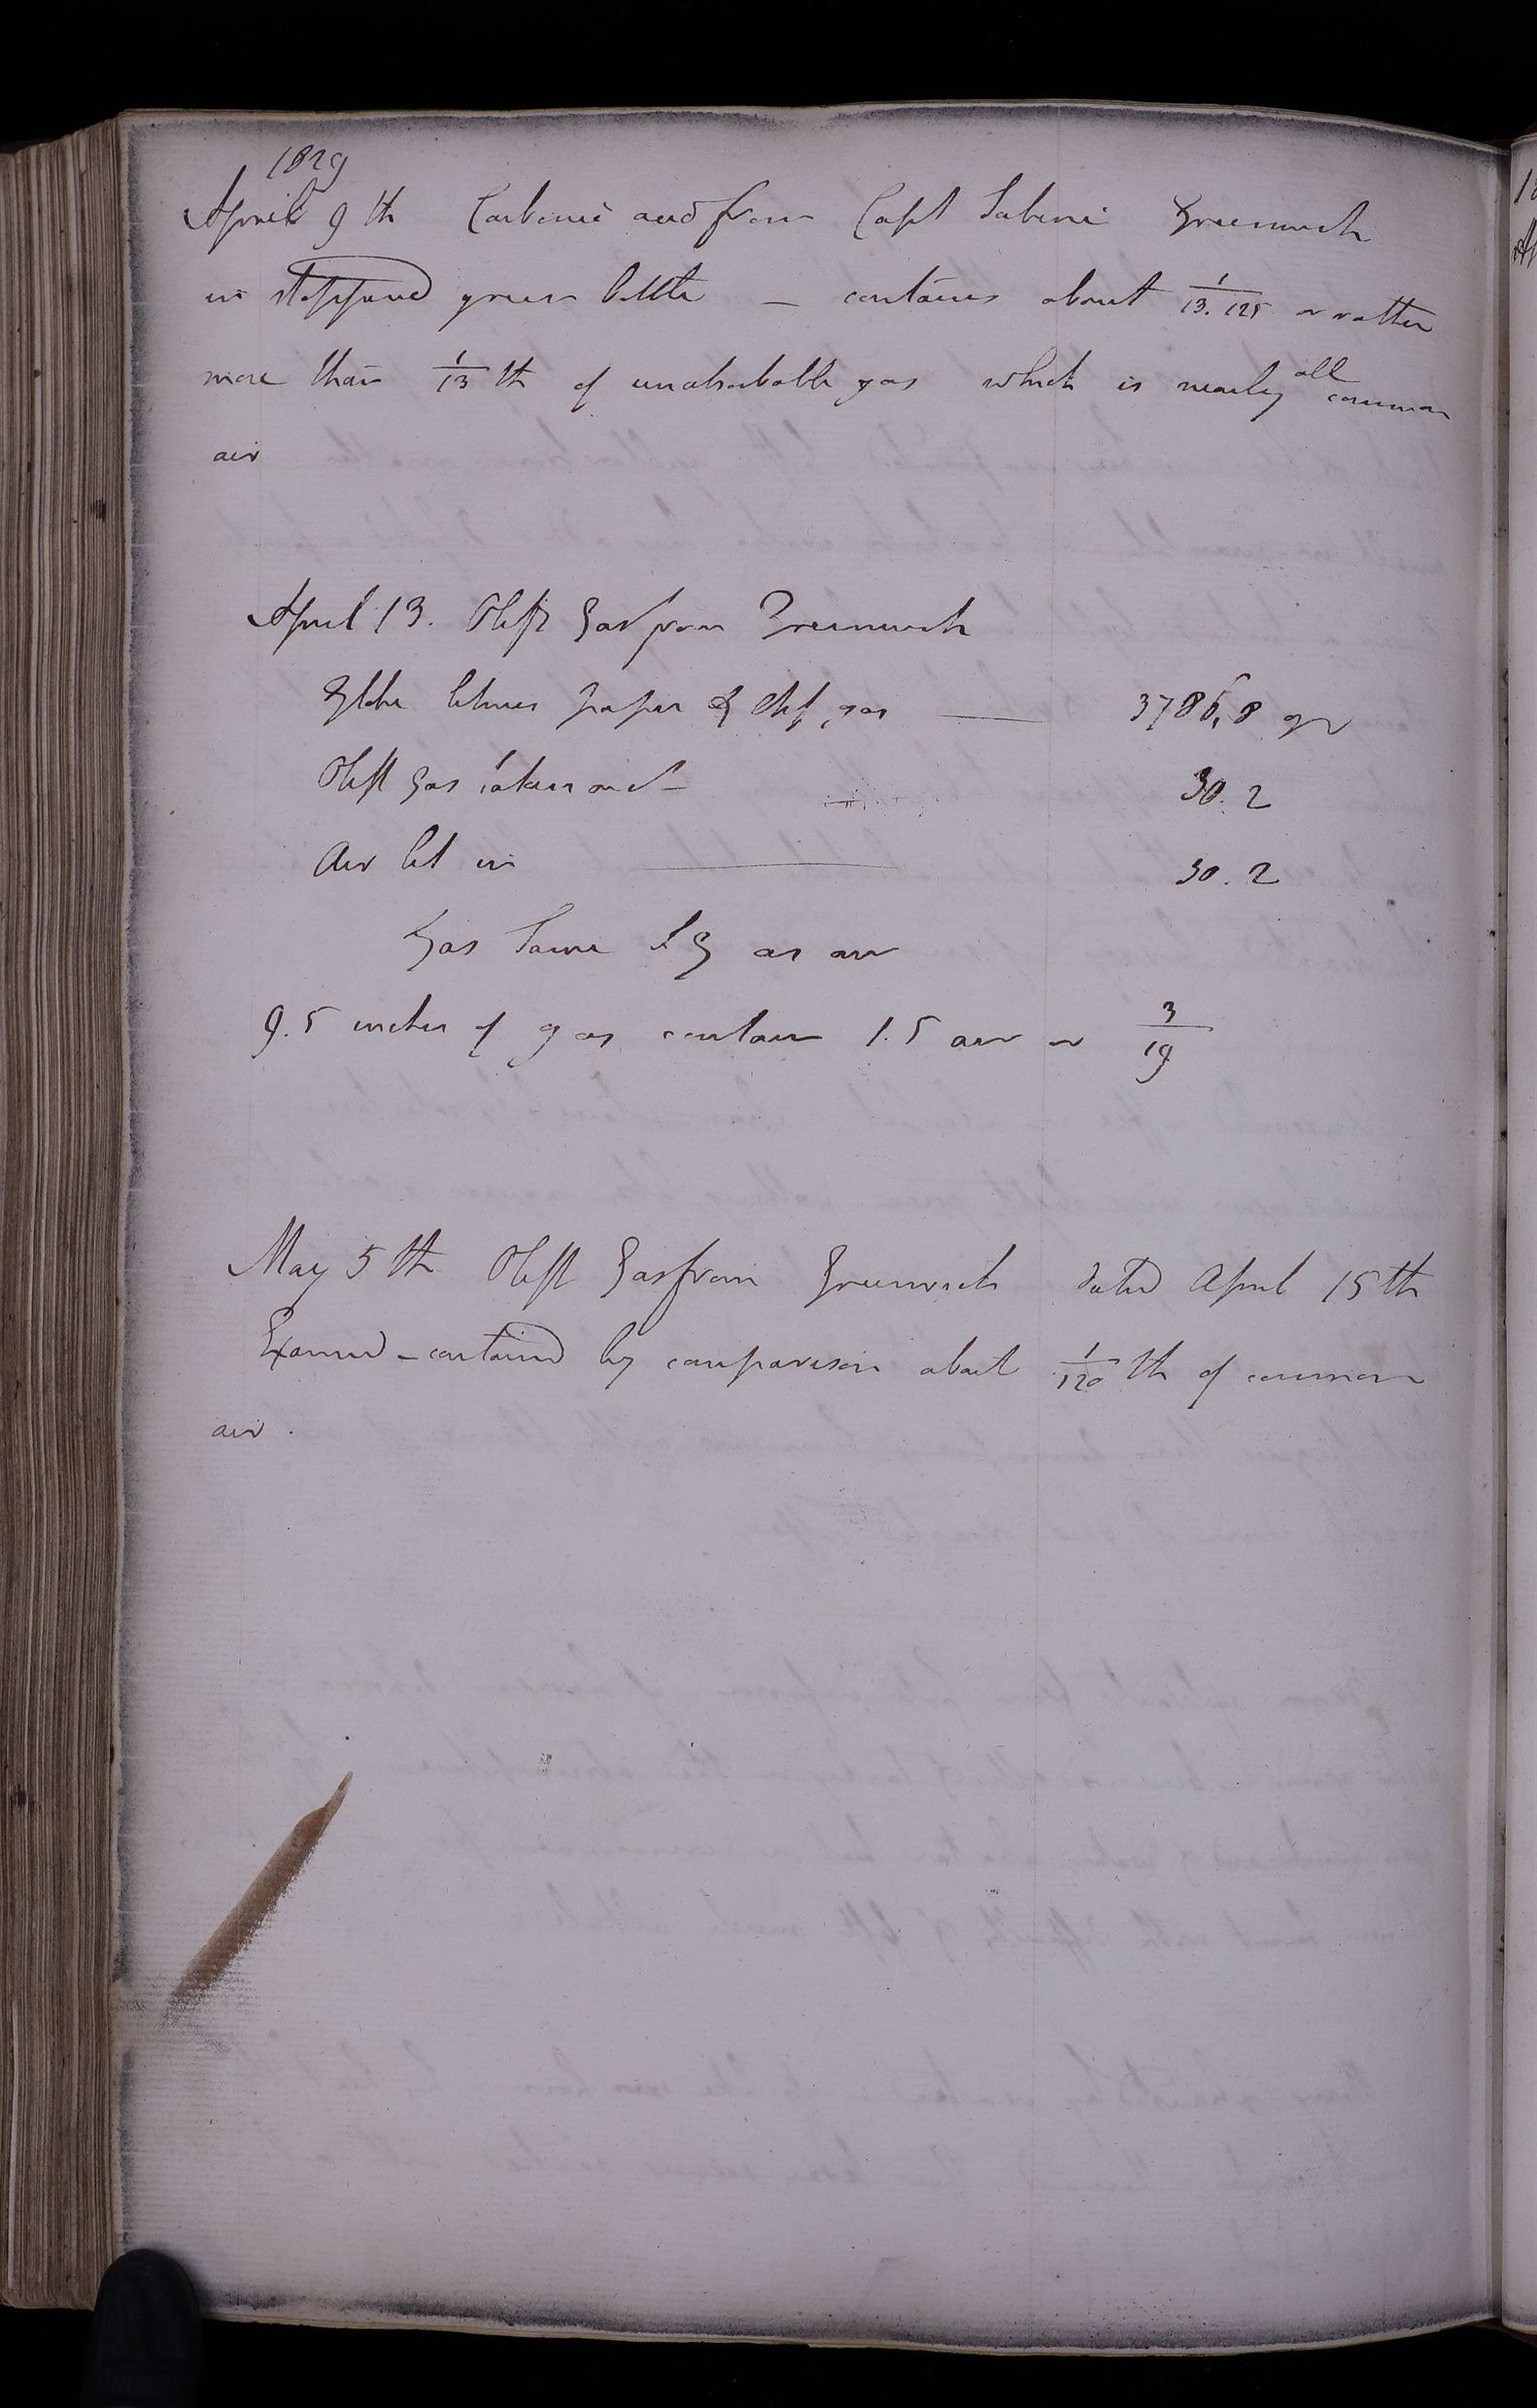 1829
April 9th Carbonic acid from Capt Sabine Greenwich
in stoppered green bottle – contains about 1/13.125 or rather
more than 1/13 th of unabsorbable gas which is nearly all common
air
April 13. Oleft Gas from Greenwich
Globe litmus paper & olef. gas — 3786,8 gr
Oleft Gas taken out – 30.2
Air let in — 30.2
Gas Same S G as air
9.5 inches of gas contain 1.5 air or 3/19
May 5th Oleft Gas from Greenwich dated April 15th
Examd – contained by comparison about 1/120 th of common
air.